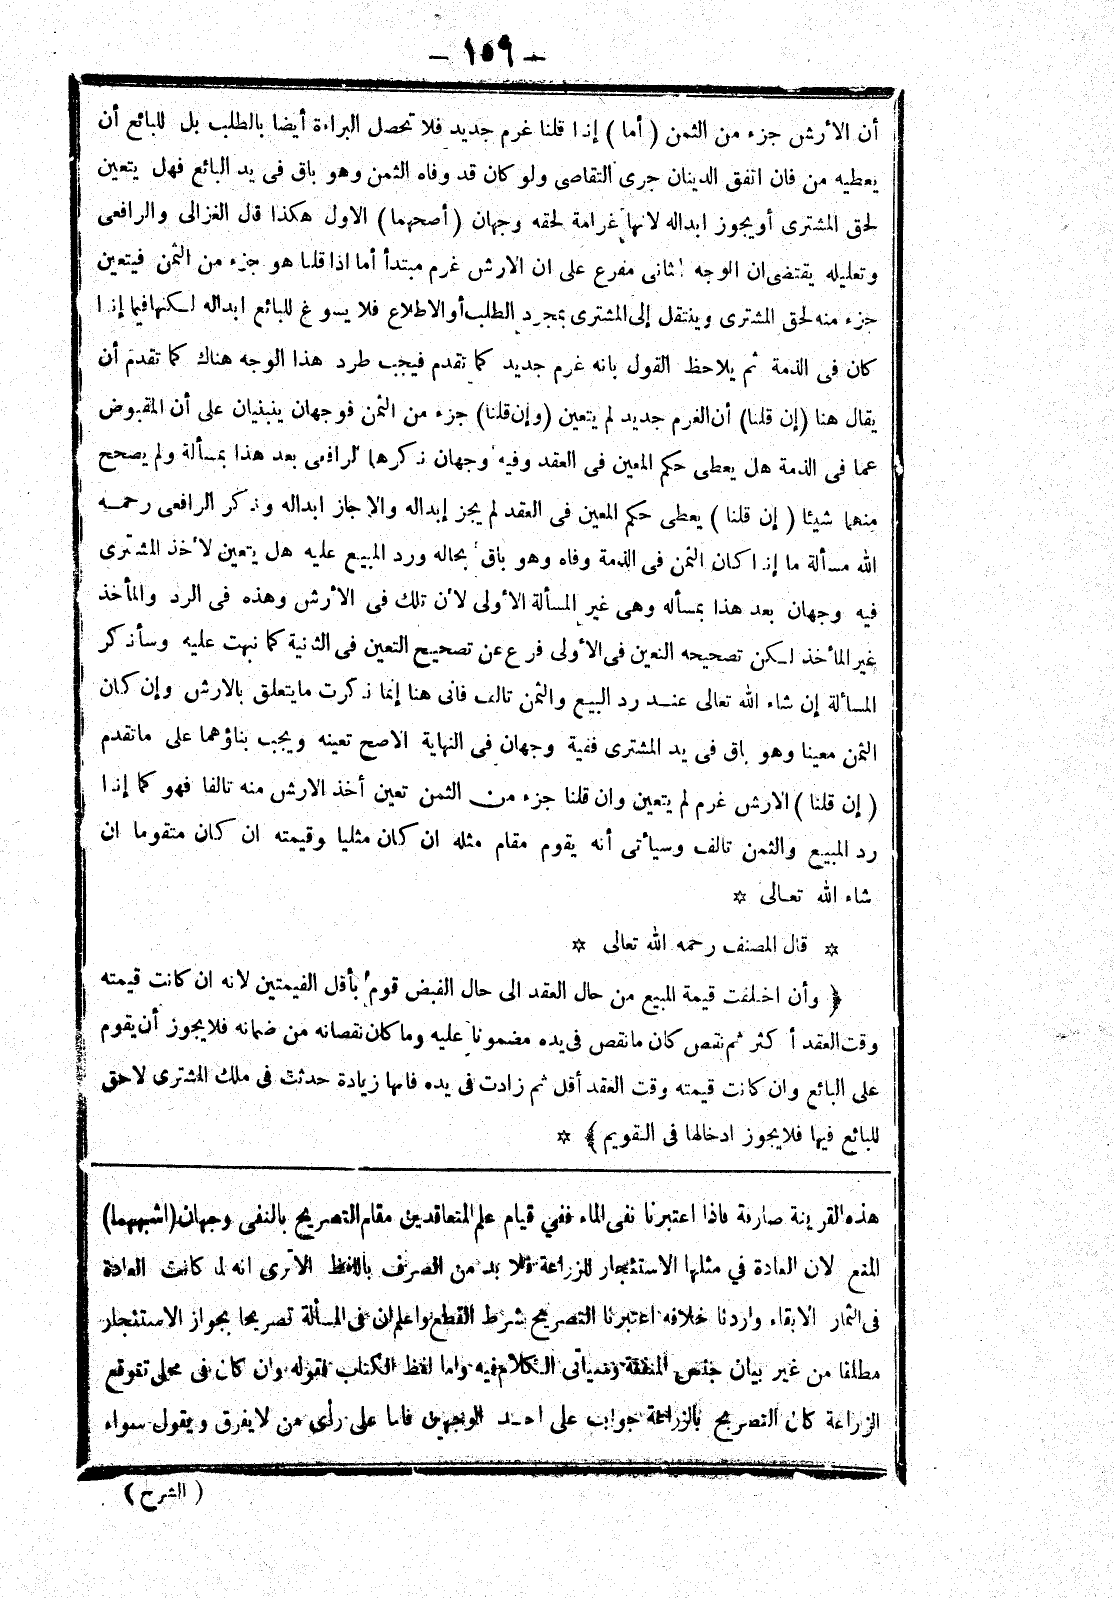 - ١٥٩ -
أن الأرش جزء من الثمن ( أما ) إذا قلنا غرم جديد فلا تحصل البراءة أيضا بالطلب بل للبائع أن
يعطيه من فان اتفق الدينان جرى التقاصى ولو كان قد وفاه الثمن وهو باق فى يد البائع فهل يتعين
لحق المشترى أو يجوز ابداله لانها غرامة لحقه وجهان ( أصحهما ) الاول هكذا قال الغزالى والرافعى
وتعليله يقتضى ان الوجه الثانى مفرع على ان الارش غرم مبتدأ أما اذا قلنا هو جزء من الثمن فيتعين
جزء منه لحق المشترى وينتقل إلى المشترى بمجرد الطلب أو الاطلاع فلا يسوغ للبائع ابداله لكنها فيما إذا
كان فى الذمة ثم يلاحظ القول بانه غرم جديد كما تقدم فيجب طرد هذا الوجه هناك كما تقدم أن
يقال هنا (إن قلنا) أن الغرم جديد لم يتعين (وإن قلنا) جزء من الثمن فوجهان ينبنيان على أن المقبوض
عما فى الذمة هل يعطى حكم المعين فى العقد وفيه وجهان ذكرهما الرافعى بعد هذا بمسألة ولم يصحح
منهما شيئا ( إن قلنا ) يعطى حكم المعين فى العقد لم يجز إبداله والإجاز ابداله وذكر الرافعى رحمه
الله مسألة ما إذا كان الثمن فى الذمة وفاه وهو باق بحاله ورد المبيع عليه هل يتعين لأخذ المشترى
فيه وجهان بعد هذا بمسأله وهى غير المسألة الأولى لأن تلك فى الأرش وهذه فى الرد والمأخذ
غير المأخذ لكن تصحيحه التعين فى الأولى فرع عن تصحيح التعين فى الثنية كما نبهت عليه وسأذكر
المسألة إن شاء الله تعالى عند رد البيع والثمن تالف فانى هنا إنما ذكرت ما يتعلق بالارش وإن كان
الثمن معينا وهو باق فى يد المشترى ففية وجهان فى النهاية الاصح تعينه ويجب بناؤهما على ماتقدم
( إن قلنا ) الارش غرم لم يتعين وان قلنا جزء من الثمن تعين أخذ الارش منه تالفا فهو كما إذا
رد المبيع والثمن تالف وسيأتى أنه يقوم مقام مثله ان كان مثليا وقيمته ان كان متقوما ان
شاء الله تعالى ✡
✡ قال المصنف رحمه الله تعالى ✡
﴿ وأن اختلفت قيمة المبيع من حال العقد الى حال القبض قوم بأقل القيمتين لانه ان كانت قيمته
وقت العقد أكثر ثم نقص كان مانقص فى يده مضمونا عليه وما كان نقصانه من ضمانه فلا يجوز أن يقوم
على البائع وان كانت قيمته وقت العقد أقل ثم زادت فى يده فانها زيادة حدثت فى ملك المشترى لاحق
للبائع فيها فلا يجوز ادخالها فى التقويم ﴾ ✡
هذه القرينة صارفة فاذا اعتبرنا نفى الماء ففي قيام علم المتعاقدين مقام التصريح بالنفى وجهان (اشبههما)
المنع لان العادة في مثلها الاستئجار للزراعة فلا بد من الصرف باللفظ الاترى انه لما كانت العادة
فى الثمار الابقاء واردنا خلافه اعتبرنا التصريح بشرط القطع واعلم ان فى المسألة تصريحا بجواز الاستئجار
مطلقا من غير بيان جنس المنفعة وسيأتى الكلام فيه واما لفظ الكتاب فقوله وان كان فى محل تتوقع
الزراعة كان التصريح بالزراعة جواب على احد الوجهين فاما على رأى من لا يفرق ويقول سواء
( الشرح )